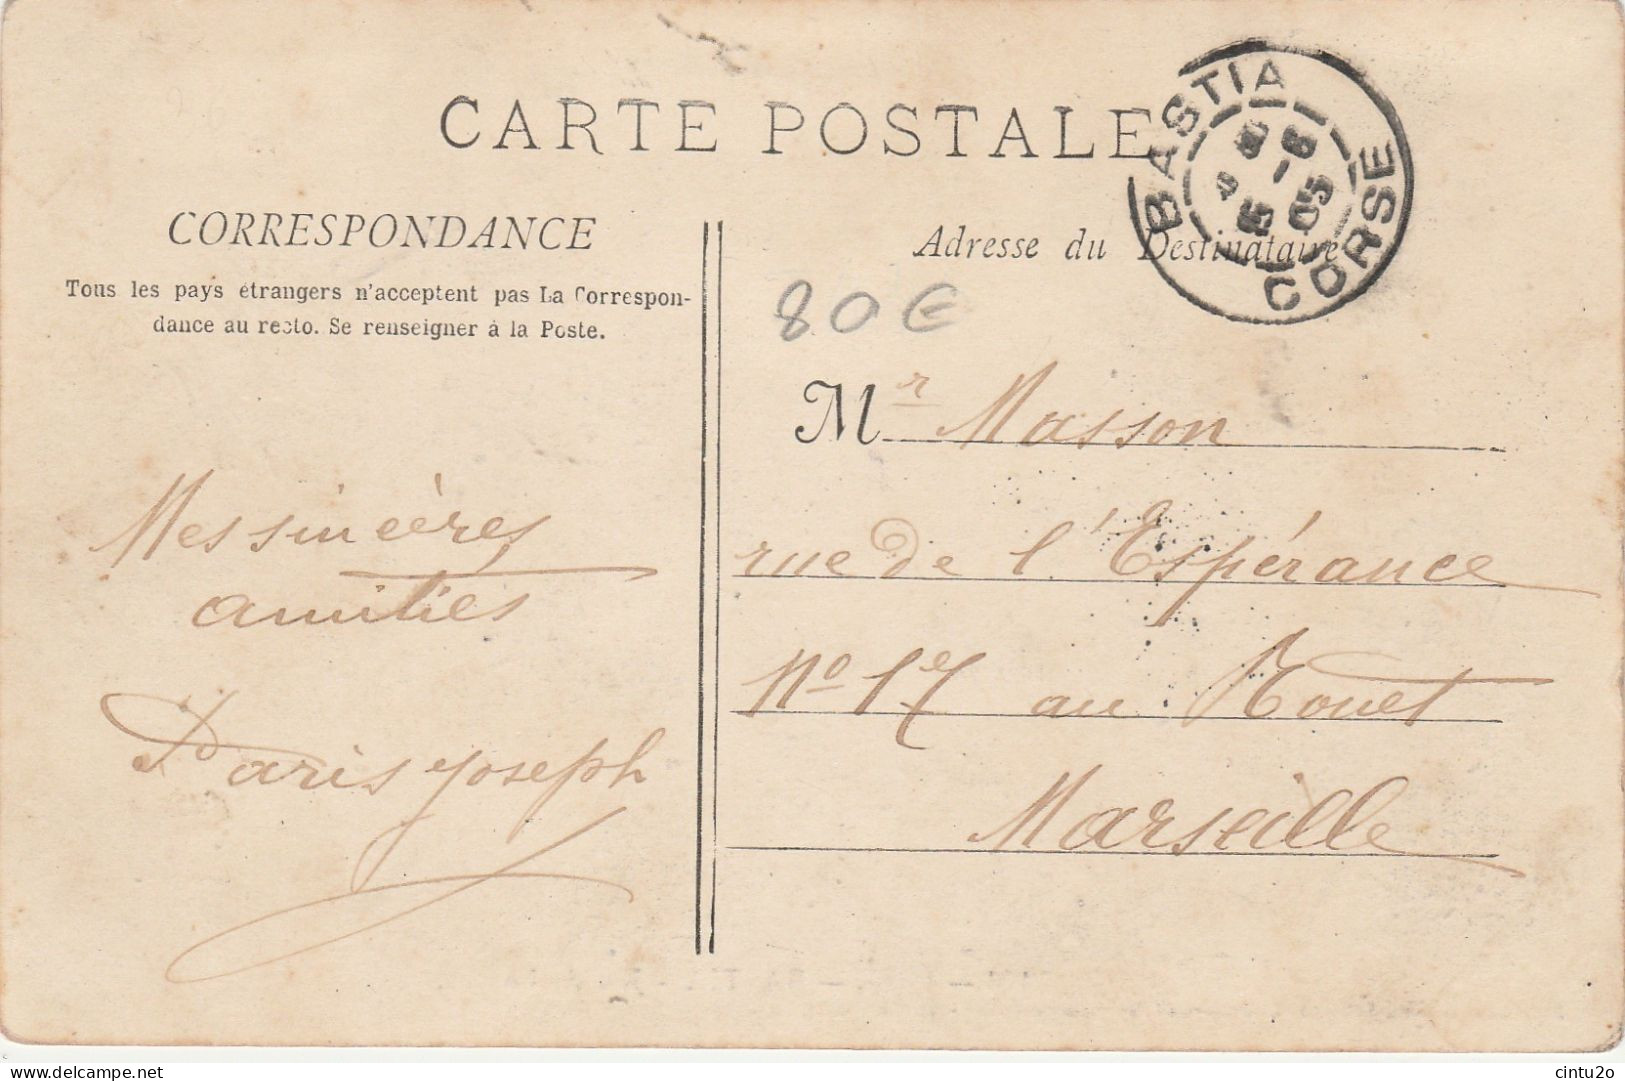 CARTE POSTALE
BASTIA
CORSE
05
CORRESPONDANCE
Tous les pays étrangers n'acceptent pas La Correspon-
dance au recto. Se renseigner à la Poste.
Adresse du Destinataire
80 €
Mr Masson
rue de l'Espérance
No 17 au Rouet
Marseille
Mes sincères
amitiés
Paris Joseph
delcampe.net
cintu2o